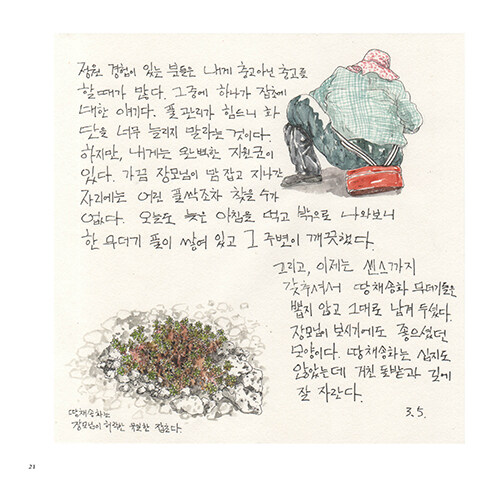 정원 경험이 있는 분들은 내게 충고아닌 충고를
할때가 많다. 그중에 하나가 잡초에
대한 얘기다. 풀 관리가 힘드니 화
단을 너무 늘리지 말라는 것이다.
하지만, 내게는 완벽한 지원군이
있다. 가끔 장모님이 맘 잡고 지나간
자리에는 어린 풀싹조차 찾을 수가
없다. 오늘도 늦은 아침을 먹고 밖으로 나와보니
한 무더기 풀이 쌓여 있고 그 주변이 깨끗했다.
그리고, 이제는 센스까지
갖추셔서 땅채송화 무더기들은
뽑지 않고 그대로 남겨 두셨다.
장모님이 보시기에도 좋으셨던
모양이다. 땅채송화는 심지도
않았는데 거친 돌밭과 길에
잘 자란다.
3.5.
땅채송화는
장모님이 허락한 유일한 잡초다.
21